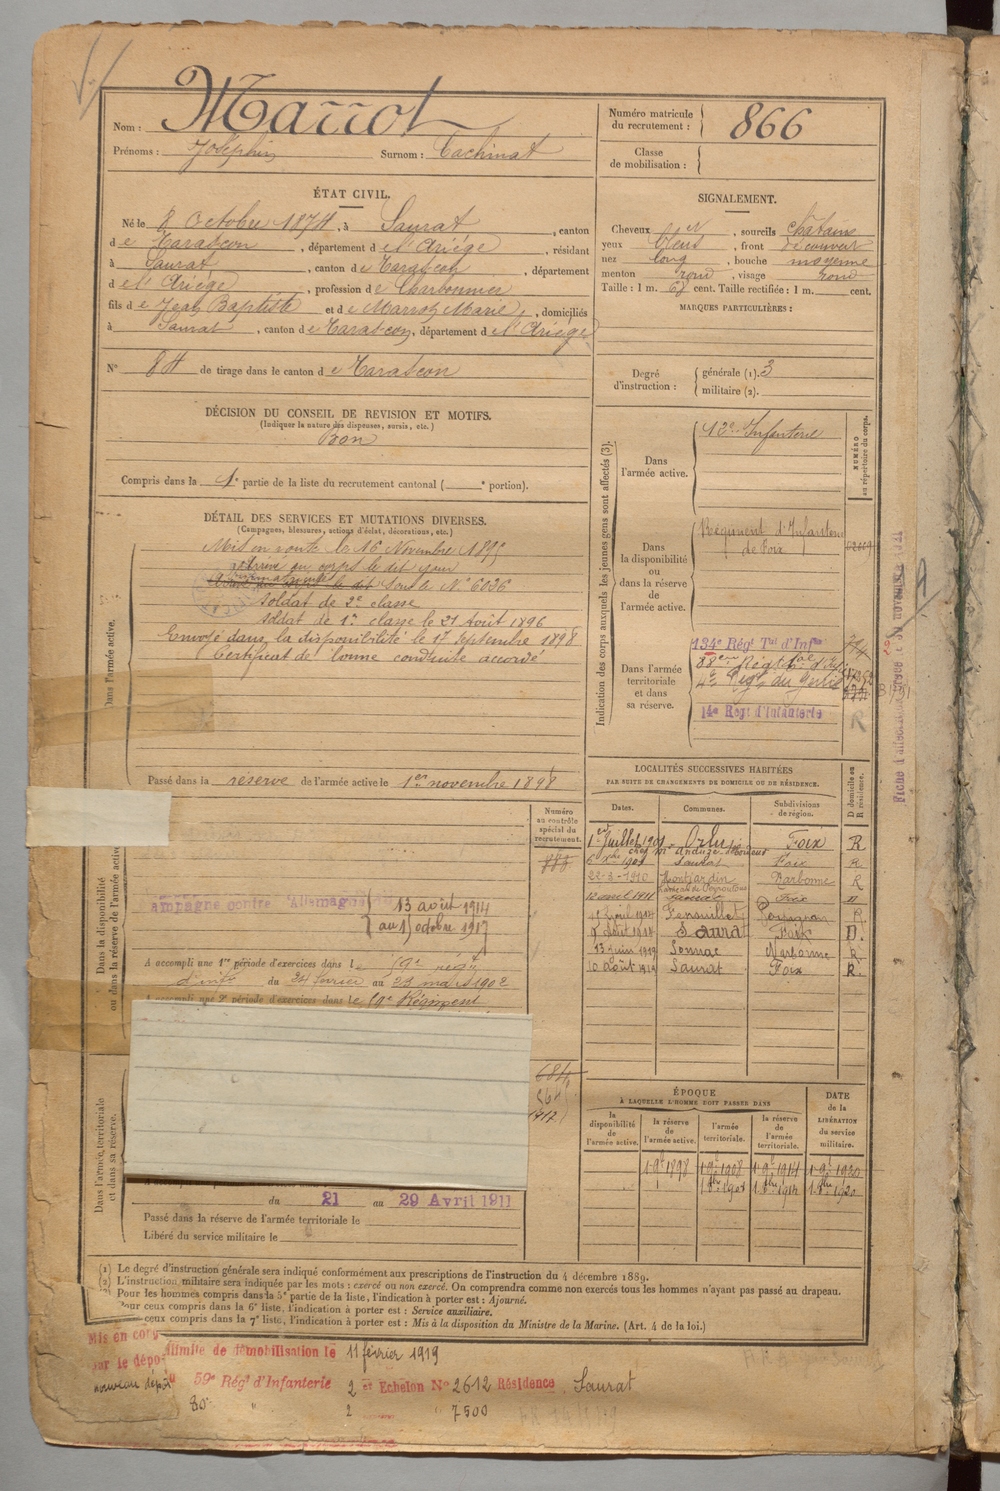 Nom : Marrot
Prénoms : Joséphin Surnom : Cachinat
Numéro matricule du recrutement : 866
Classe de mobilisation :
ÉTAT CIVIL.
Né le 8 Octobre 1874, à Saurat, canton
de Tarascon, département de l'Ariège, résidant
à Saurat, canton de Tarascon, département
de l'Ariège, profession de Charbonnier
fils de Jean Baptiste et de Marrot Marie, domiciliés
à Saurat, canton de Tarascon, département de l'Ariège
N° 84 de tirage dans le canton de Tarascon
SIGNALEMENT.
Cheveux N, sourcils châtains
yeux bleus, front découvert
nez long, bouche moyenne
menton rond, visage rond
Taille : 1 m. 67 cent. Taille rectifiée : 1 m. cent.
MARQUES PARTICULIÈRES :
Degré d'instruction : générale (1). 3
militaire (2).
DÉCISION DU CONSEIL DE REVISION ET MOTIFS.
(Indiquer la nature des dispenses, sursis, etc.)
Bon
Compris dans la 1e partie de la liste du recrutement cantonal ( e portion).
DÉTAIL DES SERVICES ET MUTATIONS DIVERSES.
(Campagnes, blessures, actions d'éclat, décorations, etc.)
Dans l'armée active.
Mis en route le 16 Novembre 1895
Arrivé au corps le dit jour
Sous le N° 6036
soldat de 2e classe
soldat de 1re classe le 21 août 1896
Envoyé dans la disponibilité le 17 Septembre 1898
Certificat de bonne conduite accordé
Passé dans la réserve de l'armée active le 1er novembre 1898
Indication des corps auxquels les jeunes gens sont affectés (3).
NUMÉRO au répertoire du corps.
Dans l'armée active.
12e Infanterie
Dans la disponibilité ou dans la réserve de l'armée active.
Régiment d'Infanterie
de Foix
Dans l'armée territoriale et dans sa réserve.
134e Régt Tal d'Infie
14e Régt d'Infanterie
R
LOCALITÉS SUCCESSIVES HABITÉES
PAR SUITE DE CHANGEMENTS DE DOMICILE OU DE RÉSIDENCE.
Dates. Communes. Subdivisions de région. D domicile ou R résidence.
1er Juillet 1901 Orlu Foix R
1901 Saurat Foix R
22-3-1910 Montjardin Narbonne R
12 avril 1911 Saurat Foix
Perpignan R
Saurat Foix D.
13 juin 1919 Sonnac Narbonne R
10 août 1919 Saurat Foix R.
Dans la disponibilité ou dans la réserve de l'armée active
Numéro au contrôle spécial du recrutement.
888
Campagne contre l'Allemagne 13 août 1914
au 1 octobre 1917
A accompli une 1re période d'exercices dans le 59e régt
d'infie du 24 février au 23 mars 1902
A accompli une 2e période d'exercices dans le 59e Régiment
684
Dans l'armée territoriale et dans sa réserve.
du 21 au 29 Avril 1911
Passé dans la réserve de l'armée territoriale le
Libéré du service militaire le
ÉPOQUE
À LAQUELLE L'HOMME DOIT PASSER DANS
la disponibilité de l'armée active. la réserve de l'armée active. l'armée territoriale. la réserve de l'armée territoriale.
DATE de la LIBÉRATION du service militaire.
1 9bre 1898 1 9bre 1908 1 9bre 1914 1 9bre 1920
(1) Le degré d'instruction générale sera indiqué conformément aux prescriptions de l'instruction du 4 décembre 1889.
(2) L'instruction militaire sera indiquée par les mots : exercé ou non exercé. On comprendra comme non exercés tous les hommes n'ayant pas passé au drapeau.
Pour les hommes compris dans la 5e partie de la liste, l'indication à porter est : Ajourné.
Pour ceux compris dans la 6e liste, l'indication à porter est : Service auxiliaire.
ceux compris dans la 7e liste, l'indication à porter est : Mis à la disposition du Ministre de la Marine. (Art. 4 de la loi.)
Mis en cong illimité de démobilisation le 11 février 1919
par le dépô du 59e Régt d'Infanterie 2 et Echelon No 2612 Résidence Saurat
nouveau dépôt 80 " 2 " 7500